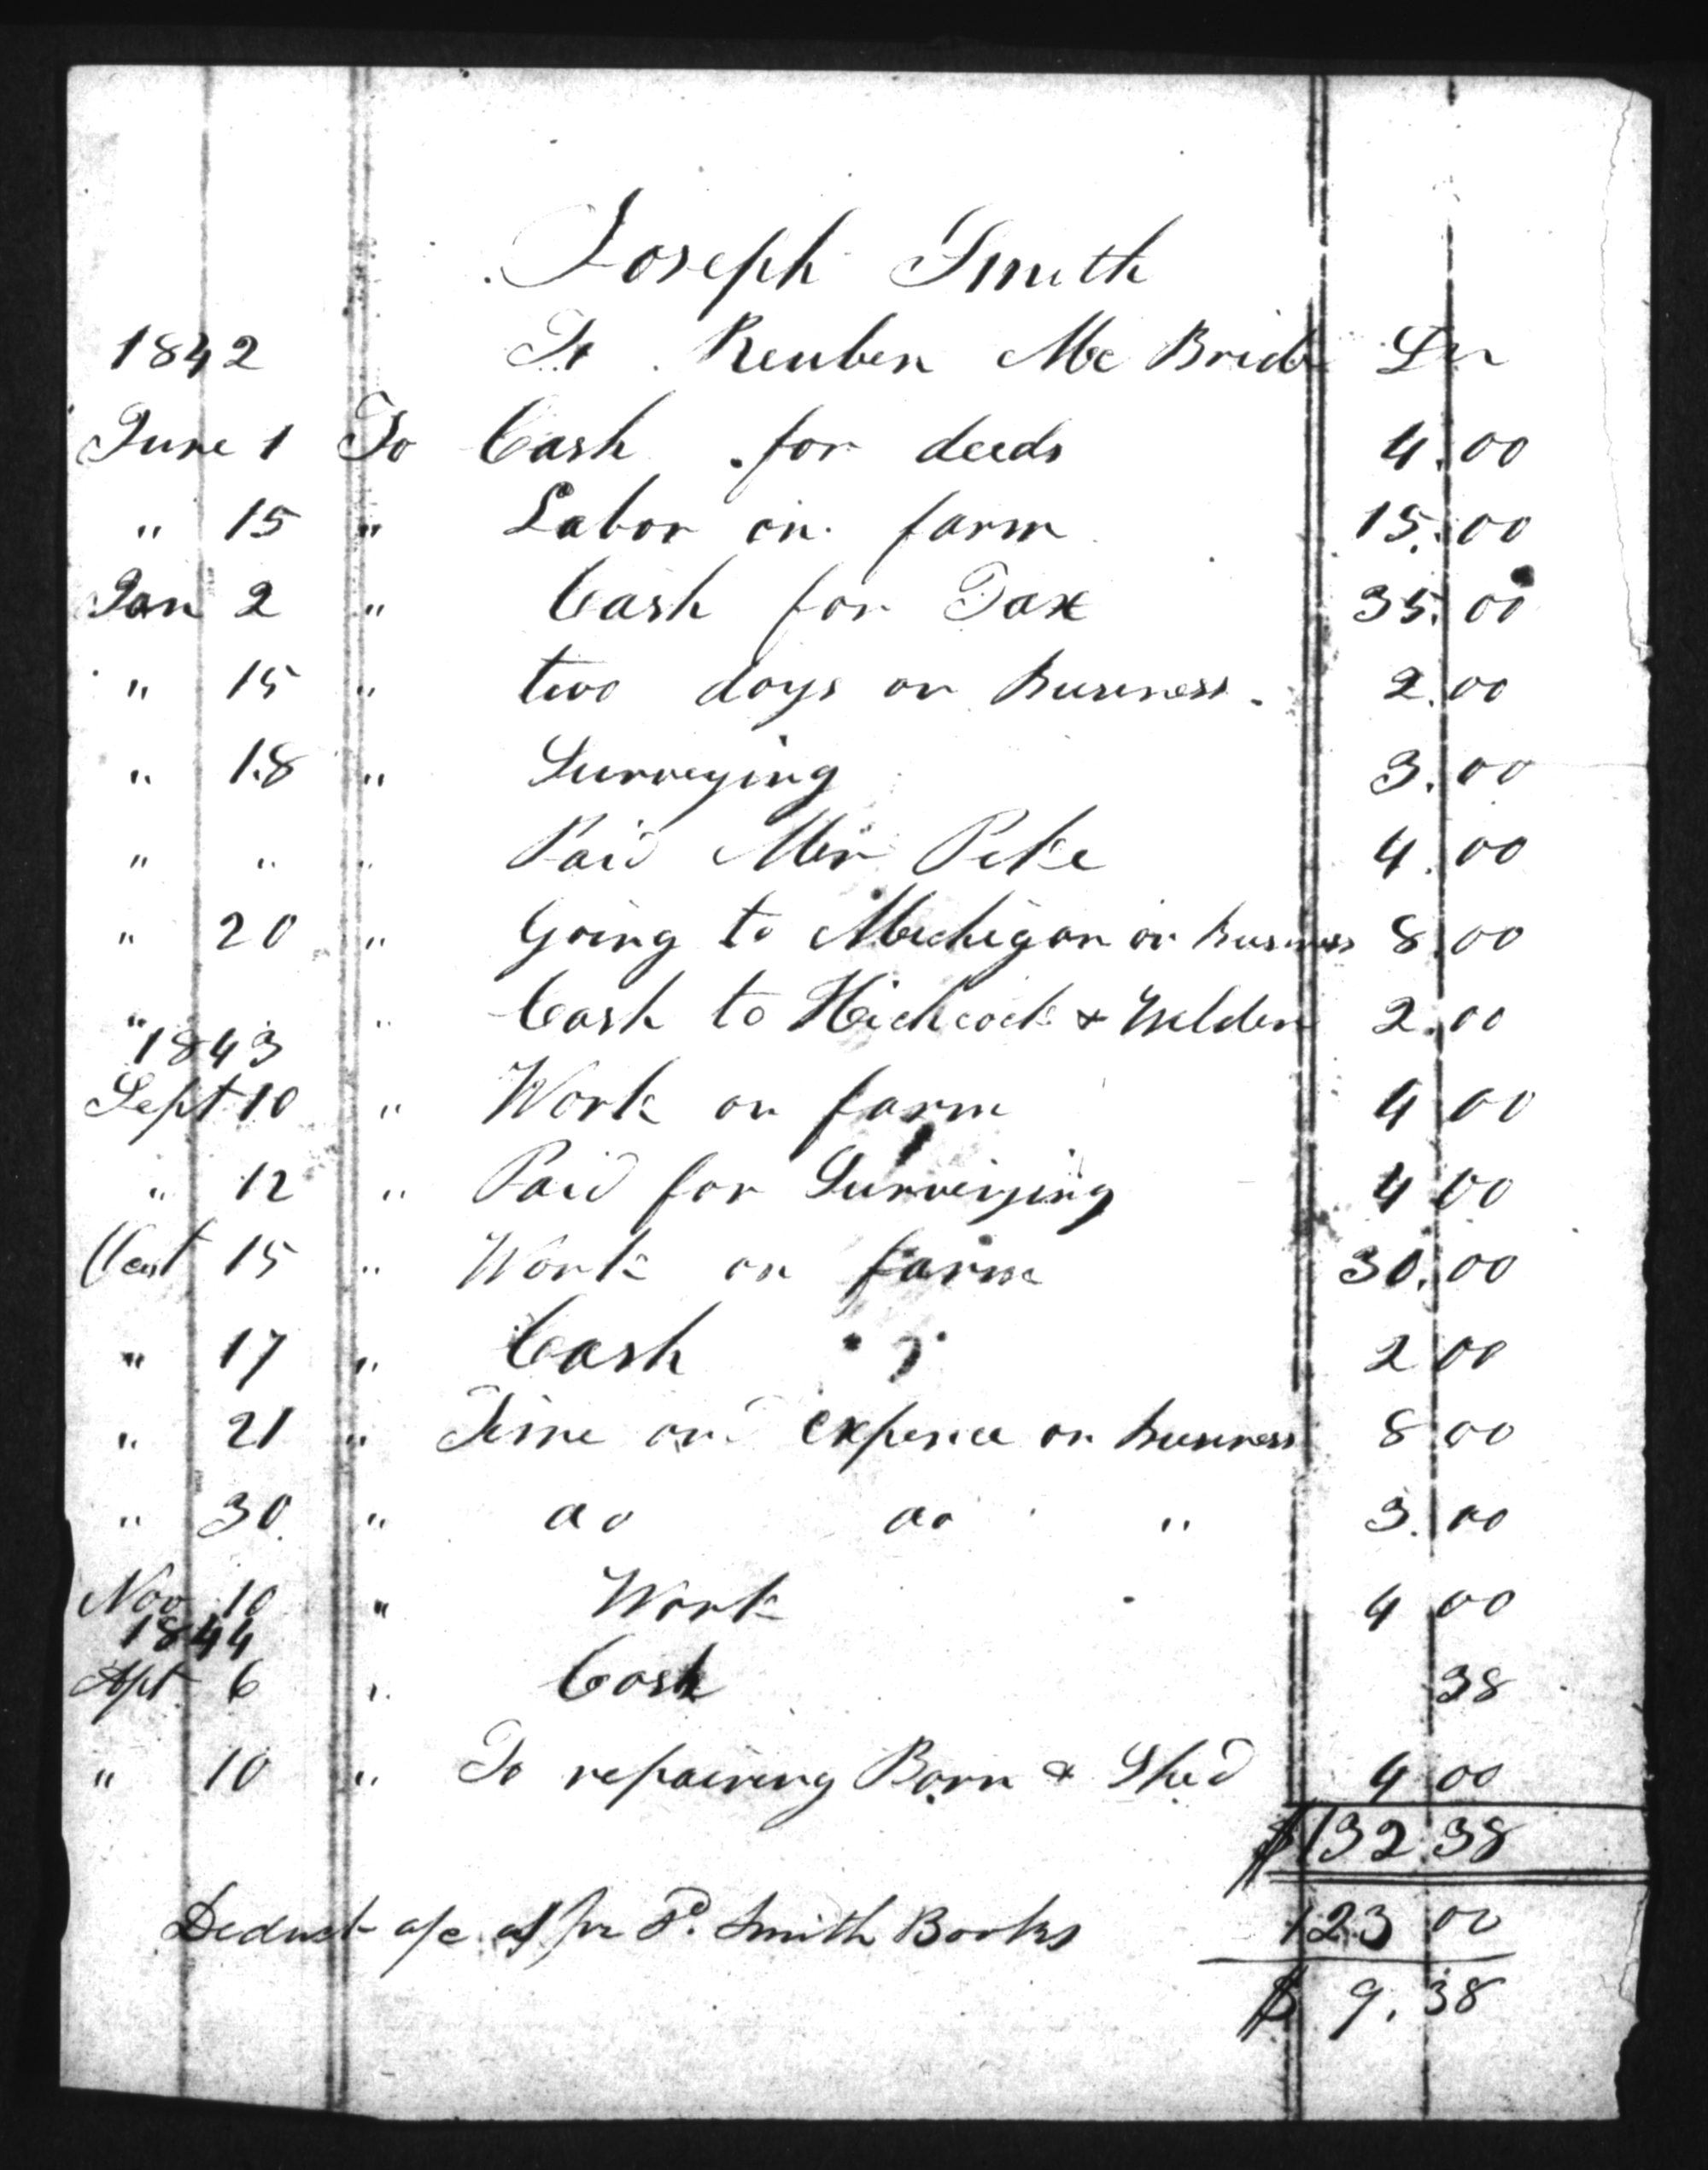 Joseph Smith
1842 To Reuben Mc Bride Dr
June 1 To Cash for deeds 4.00
" 15 " Labor on farm 15.00
Jan 2 " Cash for Tax 35.00
" 15 " two days on Business. 2.00
" 18 " Surveying 3.00
" " " Paid Mr Peke 4.00
" 20 " Going to Michigan on Business 8.00
" " Cash to Hichcock & Wilder 2.00
1843
Sept 10 " Work on farm 4 00
" 12 " Paid for Surveying 4 00
Oct 15 " Work on farm 30.00
" 17 " Cash " " 2 00
" 21 " Time and expence on Business 8 00
" 30 " do do " 3.00
Nov 10 " Work 4 00
1844
Apr 6 " Cash 38
" 10 " To repairing Barn & Shed 4 00
$132.38
Deduct a/c as pr Smith Books 123 00
$ 9.38